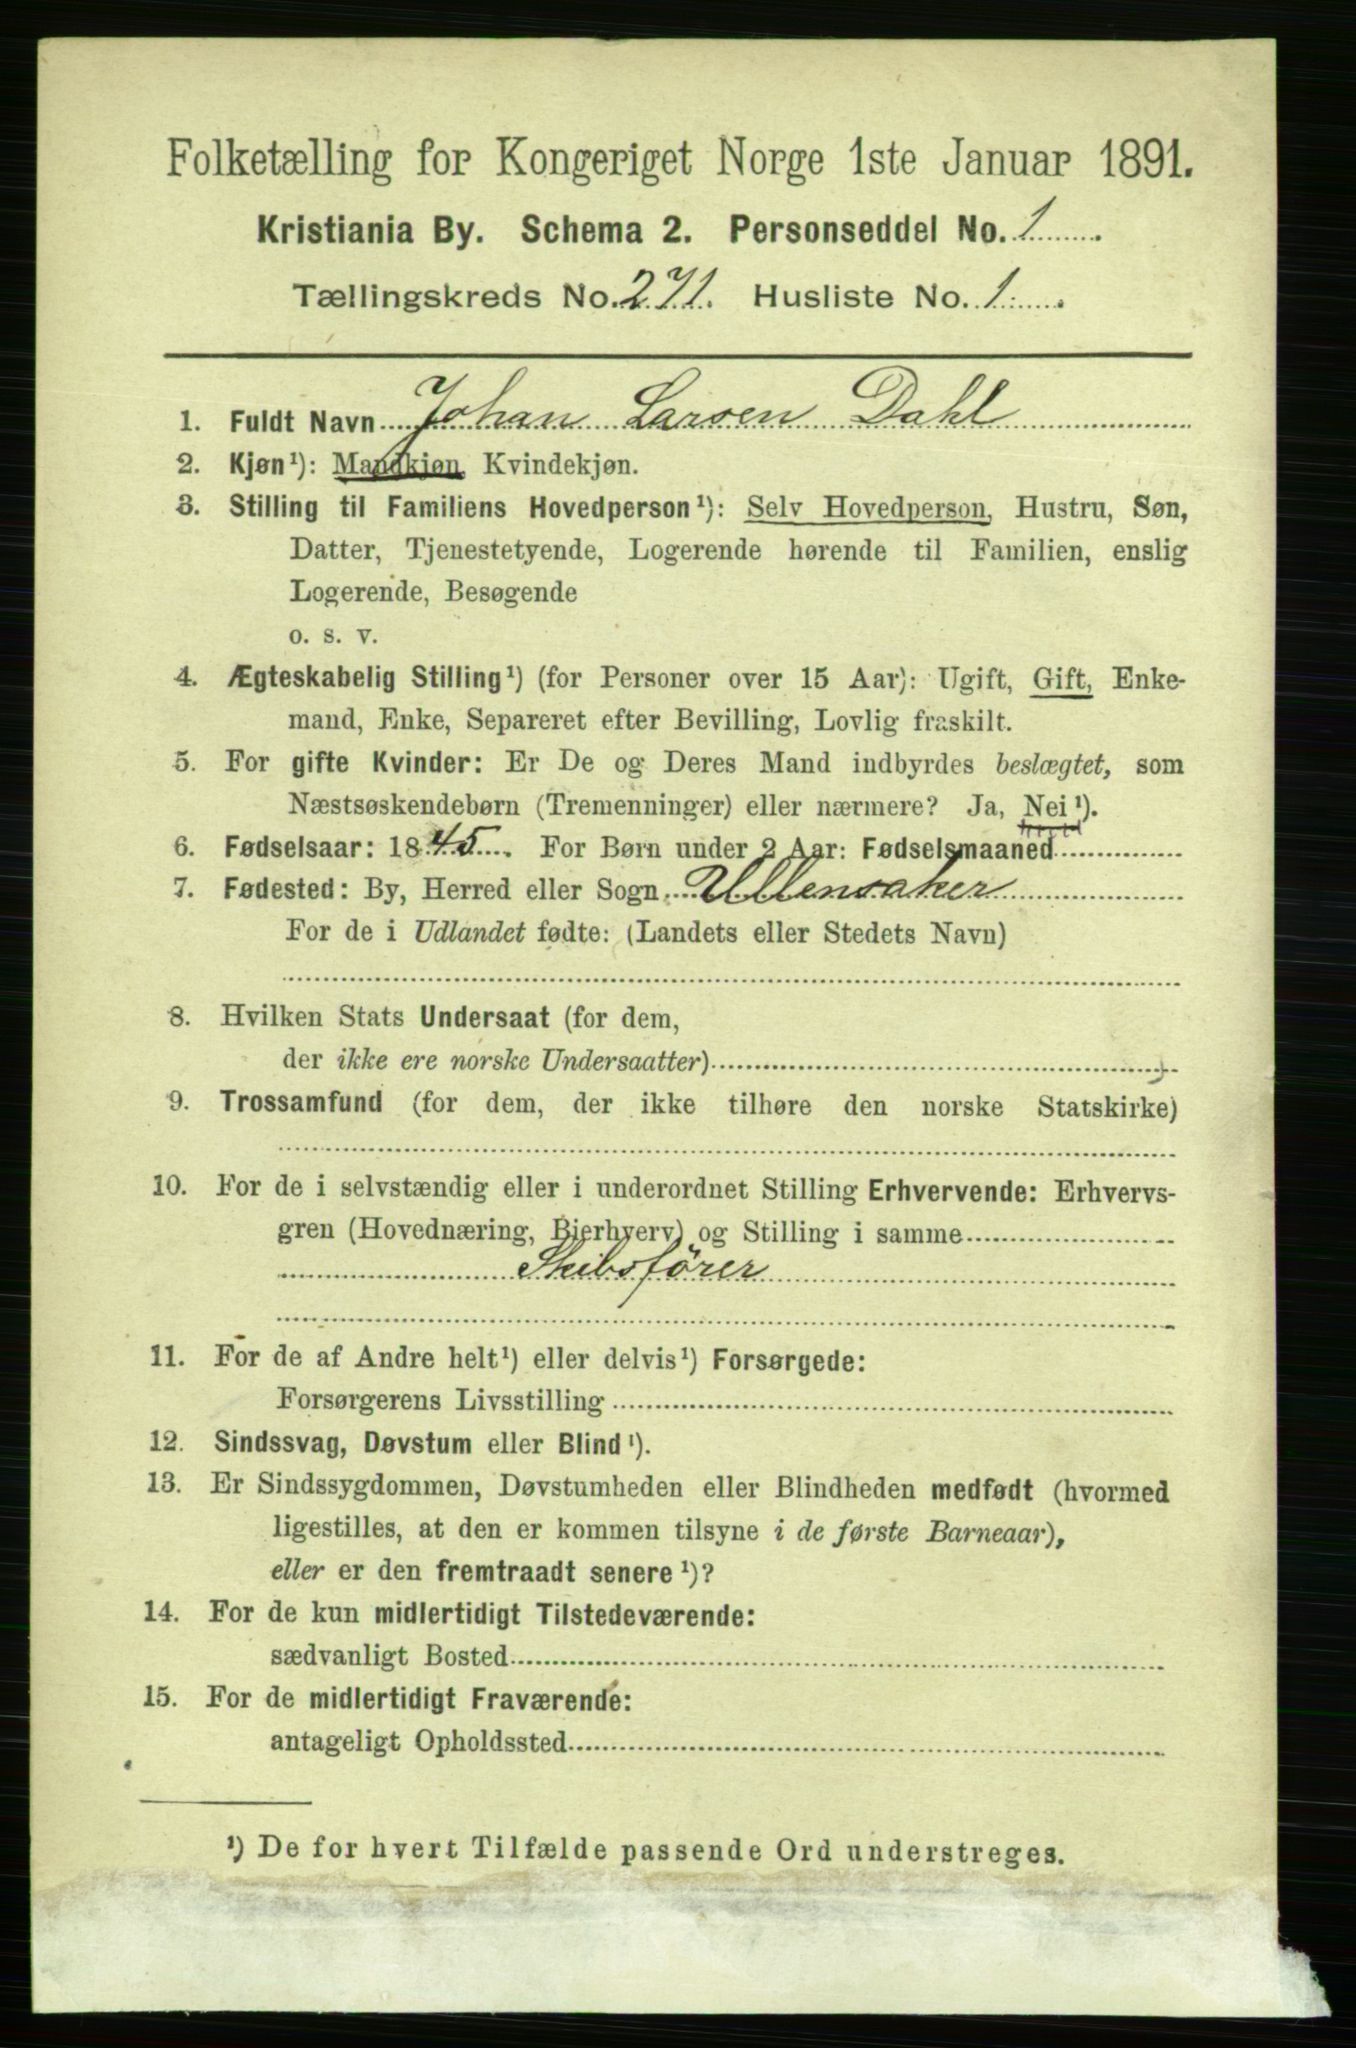 Folketælling for Kongeriget Norge 1ste Januar 1891.
Kristiania By. Schema 2. Personseddel No. 1
Tællingskreds No. 271. Husliste No. 1
1. Fuldt Navn Johan Larsen Dahl
2. Kjøn¹): Mandkjøn, Kvindekjøn.
3. Stilling til Familiens Hovedperson¹): Selv Hovedperson, Hustru, Søn,
Datter, Tjenestetyende, Logerende hørende til Familien, enslig
Logerende, Besøgende
o. s. v.
4. Ægteskabelig Stilling¹) (for Personer over 15 Aar): Ugift, Gift, Enke-
mand, Enke, Separeret efter Bevilling, Lovlig fraskilt.
5. For gifte Kvinder: Er De og Deres Mand indbyrdes beslægtet, som
Næstsøskendebørn (Tremenninger) eller nærmere? Ja, Nei¹).
6. Fødselsaar: 1845. For Børn under 2 Aar: Fødselsmaaned
7. Fødested: By, Herred eller Sogn Ullensaker
For de i Udlandet fødte: (Landets eller Stedets Navn)
8. Hvilken Stats Undersaat (for dem,
der ikke ere norske Undersaatter)
9. Trossamfund (for dem, der ikke tilhøre den norske Statskirke)
10. For de i selvstændig eller i underordnet Stilling Erhvervende: Erhvervs-
gren (Hovednæring, Bierhverv) og Stilling i samme
Skibsfører
11. For de af Andre helt¹) eller delvis¹) Forsørgede:
Forsørgerens Livsstilling
12. Sindssvag, Døvstum eller Blind¹).
13. Er Sindssygdommen, Døvstumheden eller Blindheden medfødt (hvormed
ligestilles, at den er kommen tilsyne i de første Barneaar),
eller er den fremtraadt senere¹)?
14. For de kun midlertidigt Tilstedeværende:
sædvanligt Bosted
15. For de midlertidigt Fraværende:
antageligt Opholdssted
¹) De for hvert Tilfælde passende Ord understreges.